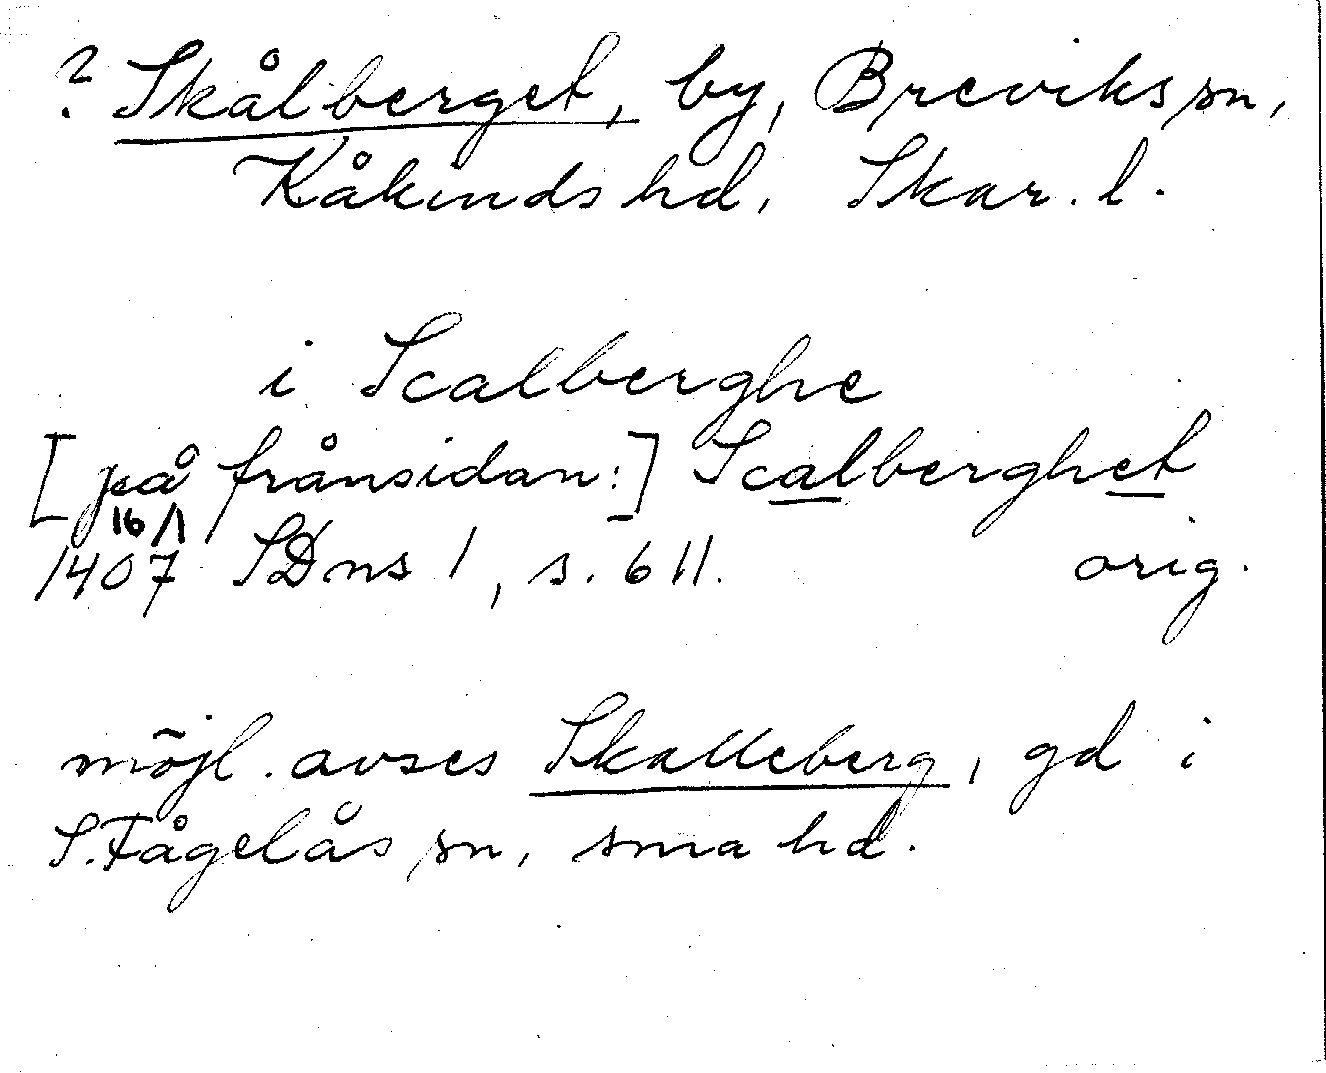 ? Skålberget, by, Breviks sn,
Kåkinds hd, Skar. l.
i Scalberghe
[på frånsidan:] Scalberghet
16/1
1407 SDns 1, s. 611. orig.
möjl. avses Skalleberg, gd i
S. Fågelås sn, sma hd.